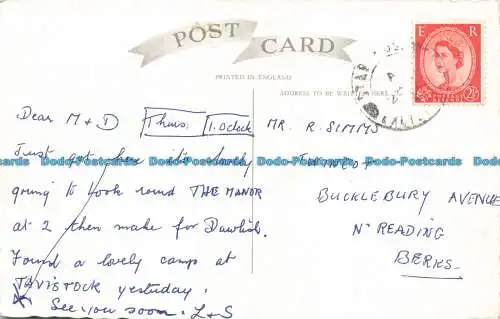 POST CARD
PRINTED IN ENGLAND
ADDRESS TO BE WRITTEN HERE
E R
2½
Dear M + D Thurs: 1. O'clock
Just got here its lovely
going to look round THE MANOR
at 2 then make for Dawlish.
Found a lovely camp at
TAVISTOCK yesterday.
See you soon. L+S
MR. R. SIMMS
BUCKLEBURY AVENUE
Nr READING
BERKS.
Dodo-Postcards Dodo-Postcards Dodo-Postcards Dodo-Postcards